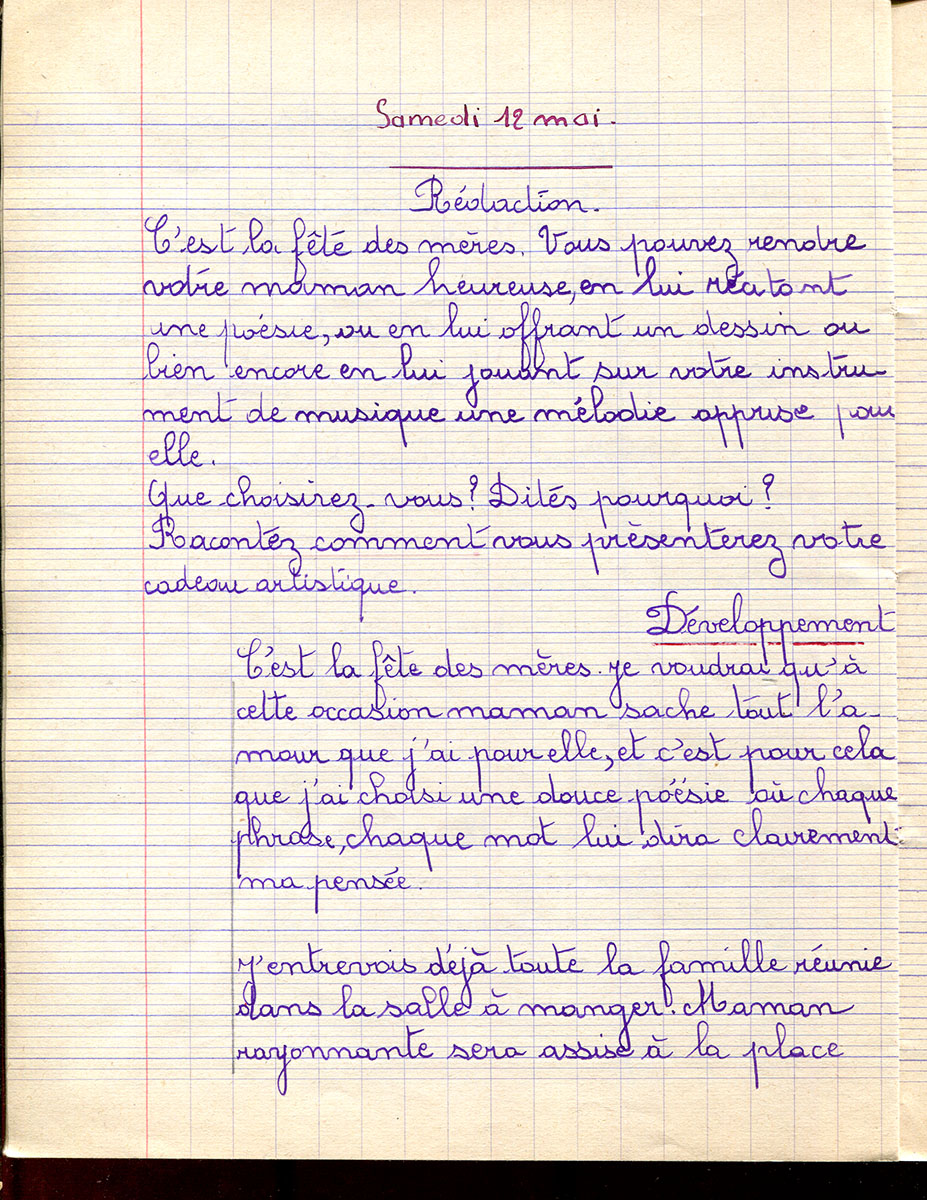 Samedi 12 mai.
Rédaction.
C'est la fêté des mères. Vous pouvez rendre
votre maman heureuse, en lui récitant
une poésie, ou en lui offrant un dessin ou
bien encore en lui jouant sur votre instru-
ment de musique une mélodie apprise pour
elle.
Que choisirez-vous? Dités pourquoi?
Racontéz comment vous présenterez votre
cadeau artistique.
Développement
C'est la fête des mères. Je voudrai qu'à
cette occasion maman sache tout l'a-
mour que j'ai pour elle, et c'est pour cela
que j'ai choisi une douce poésie où chaque
phrase, chaque mot lui dira clairement
ma pensée.
J'entrevois déjà toute la famille réunie
dans la salle à manger. Maman
rayonnante sera assise à la place